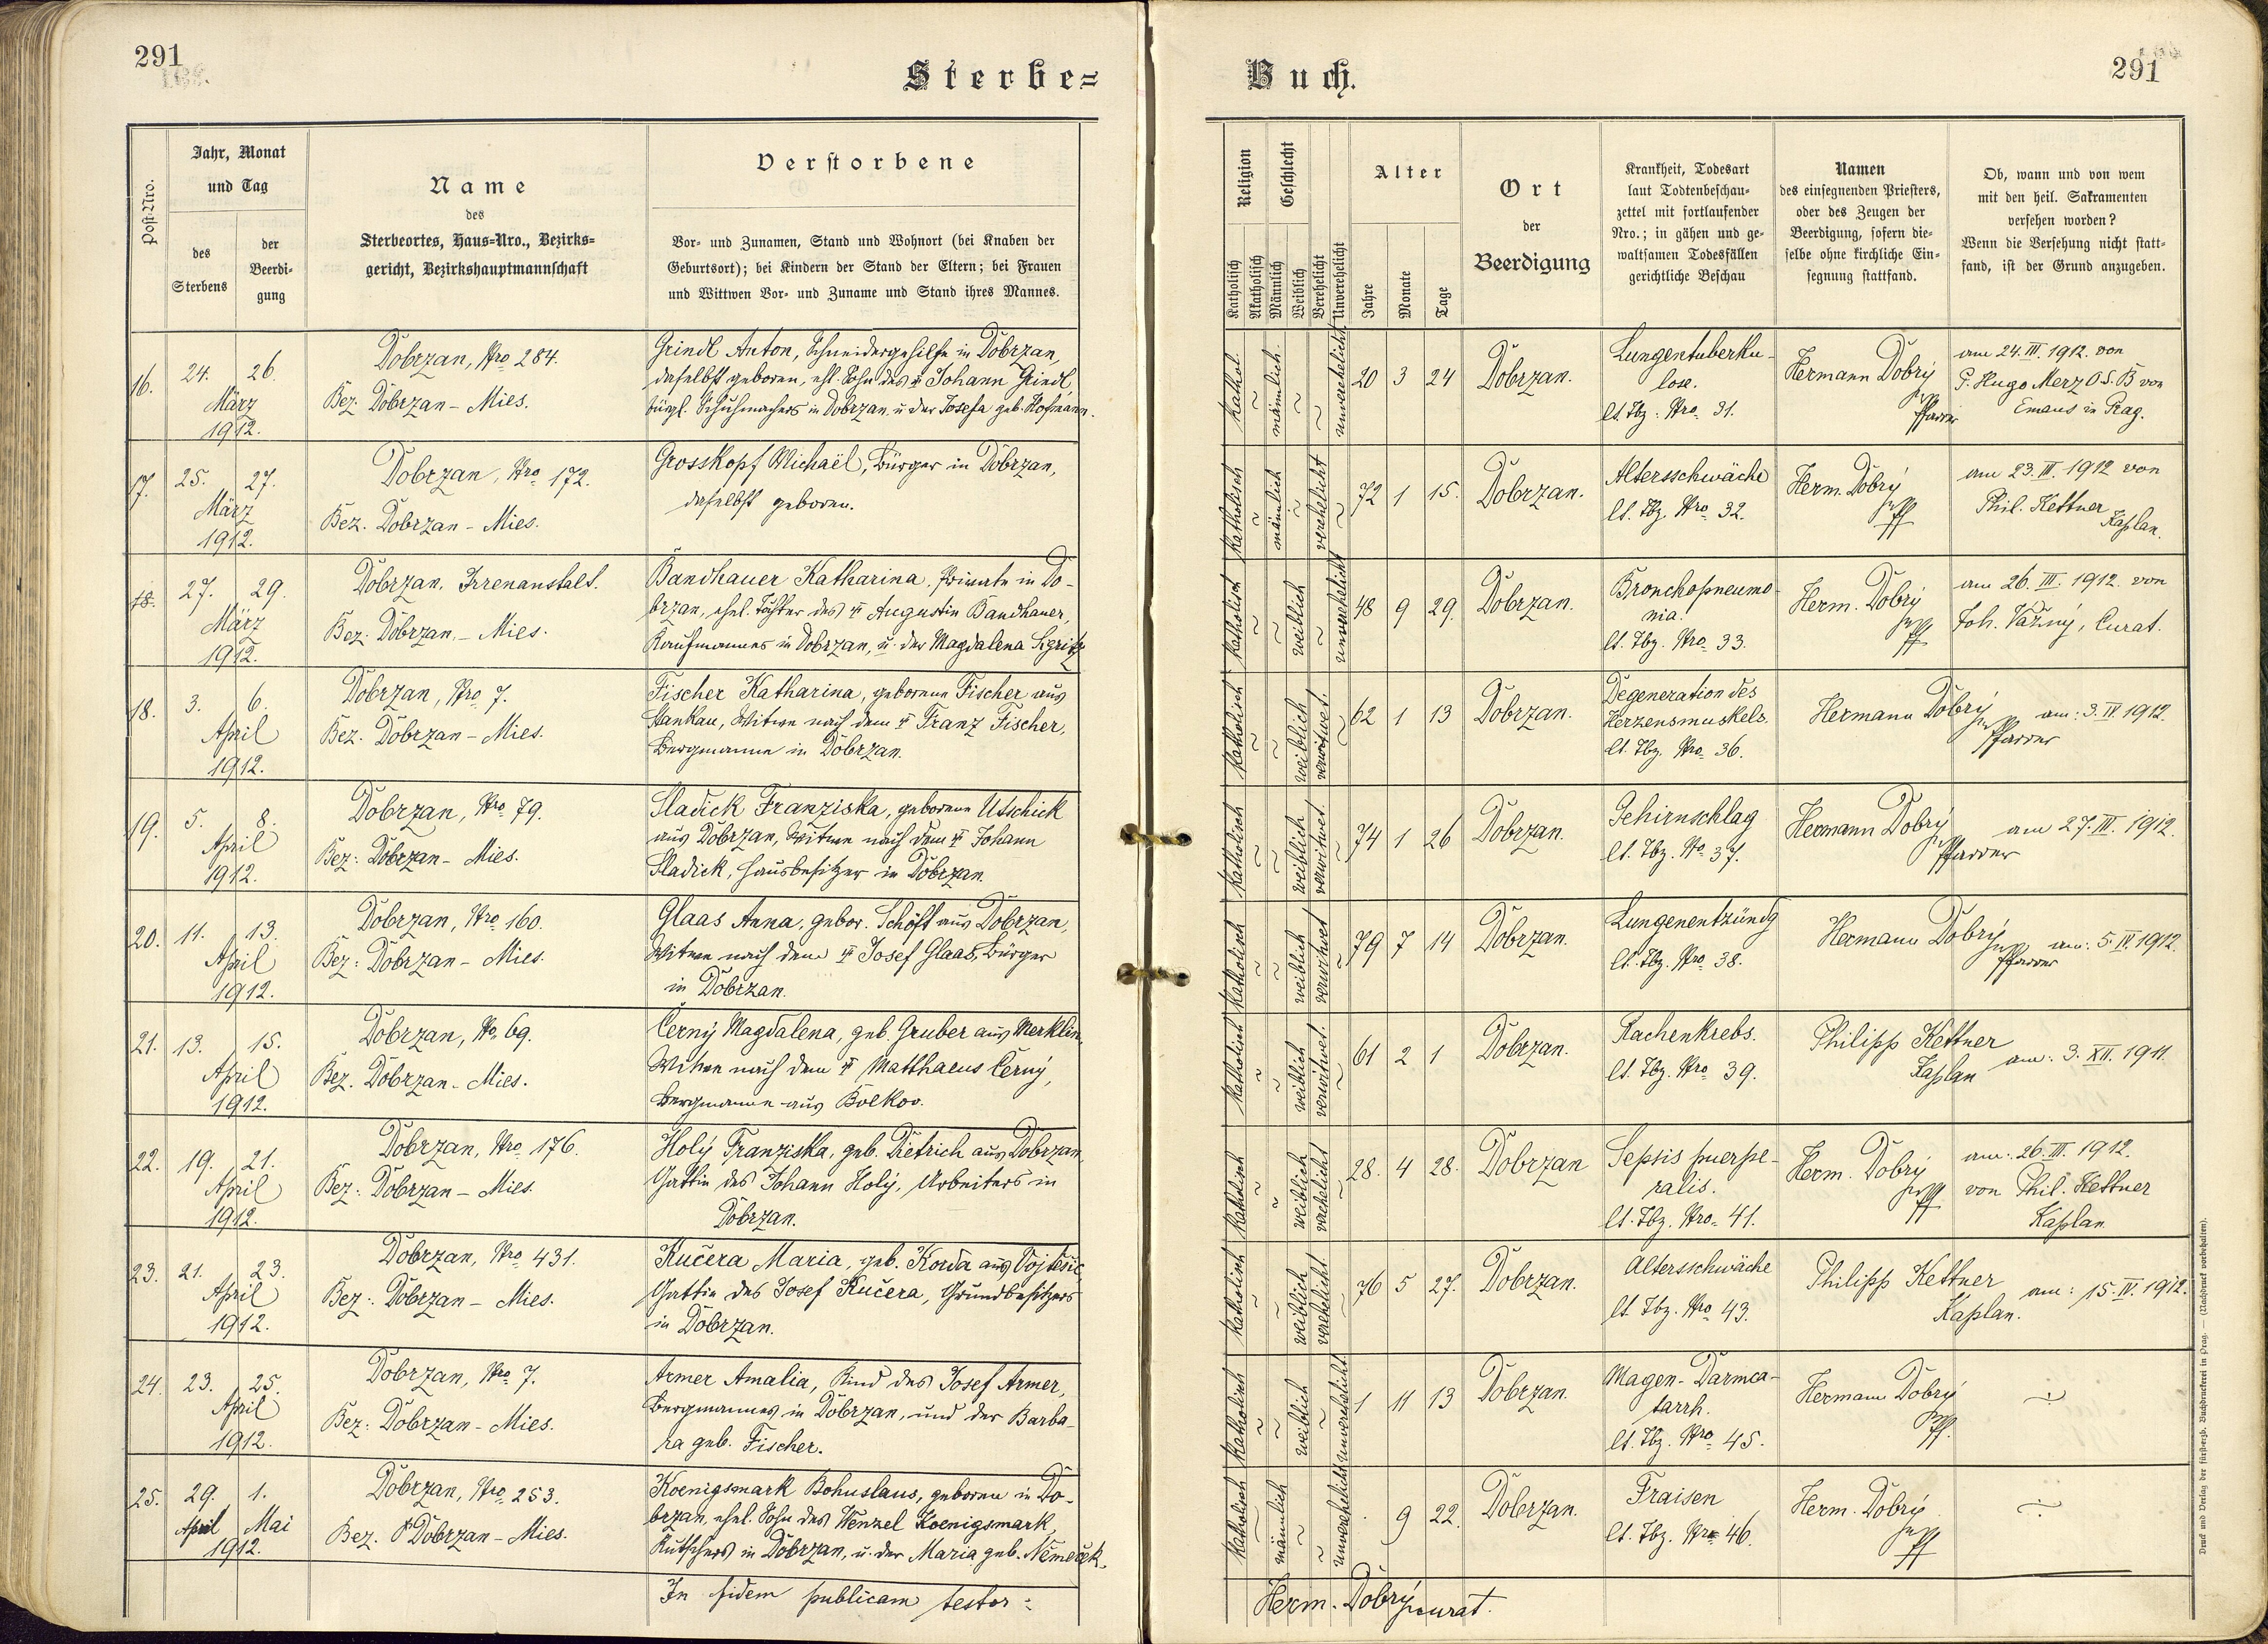 291
Sterbe=
Post-Nro.
Jahr, Monat
und Tag
des
Sterbens
der
Beerdi-
gung
Name
des
Sterbeortes, Haus-Nro., Bezirks-
gericht, Bezirkshauptmannschaft
Verstorbene
Vor- und Zunamen, Stand und Wohnort (bei Knaben der
Geburtsort); bei Kindern der Stand der Eltern; bei Frauen
und Wittwen Vor- und Zuname und Stand ihres Mannes.
16.
24. 26.
März
1912.
Dobrzan, Nro 284.
Bez. Dobrzan - Mies.
Grindl Anton, Schneidergehilfe in Dobrzan,
daselbst geboren, ehl. Sohn des † Johann Grindl,
bürgl. Schuhmachers in Dobrzan u. der Josefa geb. Hofmann.
17.
25. 27.
März
1912.
Dobrzan, Nro 172.
Bez. Dobrzan - Mies.
Grosskopf Michaël, Bürger in Dobrzan,
daselbst geboren.
18.
27. 29.
März
1912.
Dobrzan, Irrenanstalt.
Bez. Dobrzan, - Mies.
Bandhauer Katharina, Private in Do-
brzan, ehel. Tochter des † Augustin Bandhauer,
Kaufmannes in Dobrzan, u. der Magdalena
18.
3. 6.
April
1912.
Dobrzan, Nro 7.
Bez. Dobrzan - Mies.
Fischer Katharina, geborene Fischer aus
Stankau, Witwe nach dem † Franz Fischer,
Bergmanne in Dobrzan.
19.
5. 8.
April
1912.
Dobrzan, Nro 79.
Bez: Dobrzan - Mies.
Sladick Franziska, geborene Utschick
aus Dobrzan, Witwe nach dem † Johann
Sladick, Hausbesitzer in Dobrzan.
20.
11. 13.
April
1912.
Dobrzan, Nro 160.
Bez: Dobrzan - Mies.
Glaas Anna, gebor. Schöft aus Dobrzan,
Witwe nach dem † Josef Glaas, Bürger
in Dobrzan.
21.
13. 15.
April
1912.
Dobrzan, No 69.
Bez. Dobrzan - Mies.
Černý Magdalena, geb. Gruber aus Merklin,
Witwe nach dem † Matthaeus Černý,
Bergmanne aus Bolkov.
22.
19. 21.
April
1912.
Dobrzan, Nro 176.
Bez: Dobrzan - Mies.
Holý Franziska, geb. Dietrich aus Dobrzan,
Gattin des Johann Holý, Arbeiters in
Dobrzan.
23.
21. 23.
April
1912.
Dobrzan, Nro 431.
Bez: Dobrzan - Mies.
Kučera Maria, geb. Korda aus
Gattin des Josef Kučera, Grundbesitzers
in Dobrzan.
24.
23. 25.
April
1912.
Dobrzan, Nro 7.
Bez: Dobrzan - Mies.
Armer Amalia, Kind des Josef Armer,
Bergmannes in Dobrzan, und der Barba-
ra geb. Fischer.
25.
29. 1.
April Mai
1912.
Dobrzan, Nro 253.
Bez. Dobrzan - Mies.
Koenigsmark Bohuslaus, geboren in Do-
brzan, ehel. Sohn des Wenzel Koenigsmark,
Kutschers in Dobrzan, u. der Maria geb. Němeček.
In fidem publicam testor:
Buch.
291
Religion
Katholisch
Akatholisch
Geschlecht
Männlich
Weiblich
Verehelicht
Unverehelicht
Alter
Jahre
Monate
Tage
Ort
der
Beerdigung
Krankheit, Todesart
laut Todtenbeschau-
zettel mit fortlaufender
Nro.; in gähen und ge-
waltsamen Todesfällen
gerichtliche Beschau
Namen
des einsegnenden Priesters,
oder des Zeugen der
Beerdigung, sofern die-
selbe ohne kirchliche Ein-
segnung stattfand.
Ob, wann und von wem
mit den heil. Sakramenten
versehen worden?
Wenn die Versehung nicht statt-
fand, ist der Grund anzugeben.
Kathol.
männlich.
unverehelicht
20 3 24
Dobrzan.
Lungentuberku-
lose.
lt. Tbz. Nro 31.
Hermann Dobrý
Pfarrer
am 24.III.1912. von
P. Hugo Merz O.S.B von
Emaus in Prag.
Katholisch
männlich
verehelicht
72 1 15.
Dobrzan.
Altersschwäche
lt. Tbz. Nro 32.
Herm. Dobrý
Pf
am 23.III.1912 von
Phil. Kettner
Kaplan.
Katholisch
weiblich
unverehelicht
48 9 29.
Dobrzan.
Bronchopneumo-
nia.
lt. Tbz. Nro 33.
Herm. Dobrý
Pf
am 26.III.1912. von
Joh. Važný, Curat.
Katholisch
weiblich
verwitwet.
62 1 13
Dobrzan.
Degeneration des
Herzensmuskels.
lt. Tbz. Nro 36.
Hermann Dobrý
Pfarrer
am: 3.IV.1912.
Katholisch
weiblich
verwitwet.
74 1 26
Dobrzan.
Gehirnschlag
lt. Tbz. No 37.
Hermann Dobrý
Pfarrer
am 27.III.1912.
Katholisch
weiblich
verwitwet
79 7 14
Dobrzan.
Lungenentzündg
lt. Tbz. Nro 38.
Hermann Dobrý
Pfarrer
am: 5.IV.1912.
Katholisch
weiblich
verwitwet.
61 2 1
Dobrzan.
Rachenkrebs.
lt. Tbz. Nro 39.
Philipp Kettner
Kaplan
am: 3.XII.1911.
Katholisch
weiblich
verehelicht
28. 4 28.
Dobrzan
Sepsis puerpe-
ralis.
lt. Tbz. Nro 41.
Herm. Dobrý
Pf
am: 26.III.1912.
von Phil. Kettner
Kaplan
Katholisch
weiblich
verehelicht.
76 5 27.
Dobrzan.
Altersschwäche
lt. Tbz. Nro 43.
Philipp Kettner
Kaplan.
am: 15.IV.1912.
Katholisch
weiblich
unverehelicht.
1 11 13
Dobrzan.
Magen-Darmca-
tarrh.
lt. Tbz. Nro 45.
Hermann Dobrý
Pf.
Katholisch
männlich
unverehelicht
9 22.
Dobrzan.
Fraisen
lt. Tbz. Nro 46.
Herm. Dobrý
Pf
Herm. Dobrý
Druck und Verlag der fürsterzb. Buchdruckerei in Prag. — (Nachdruck vorbehalten).